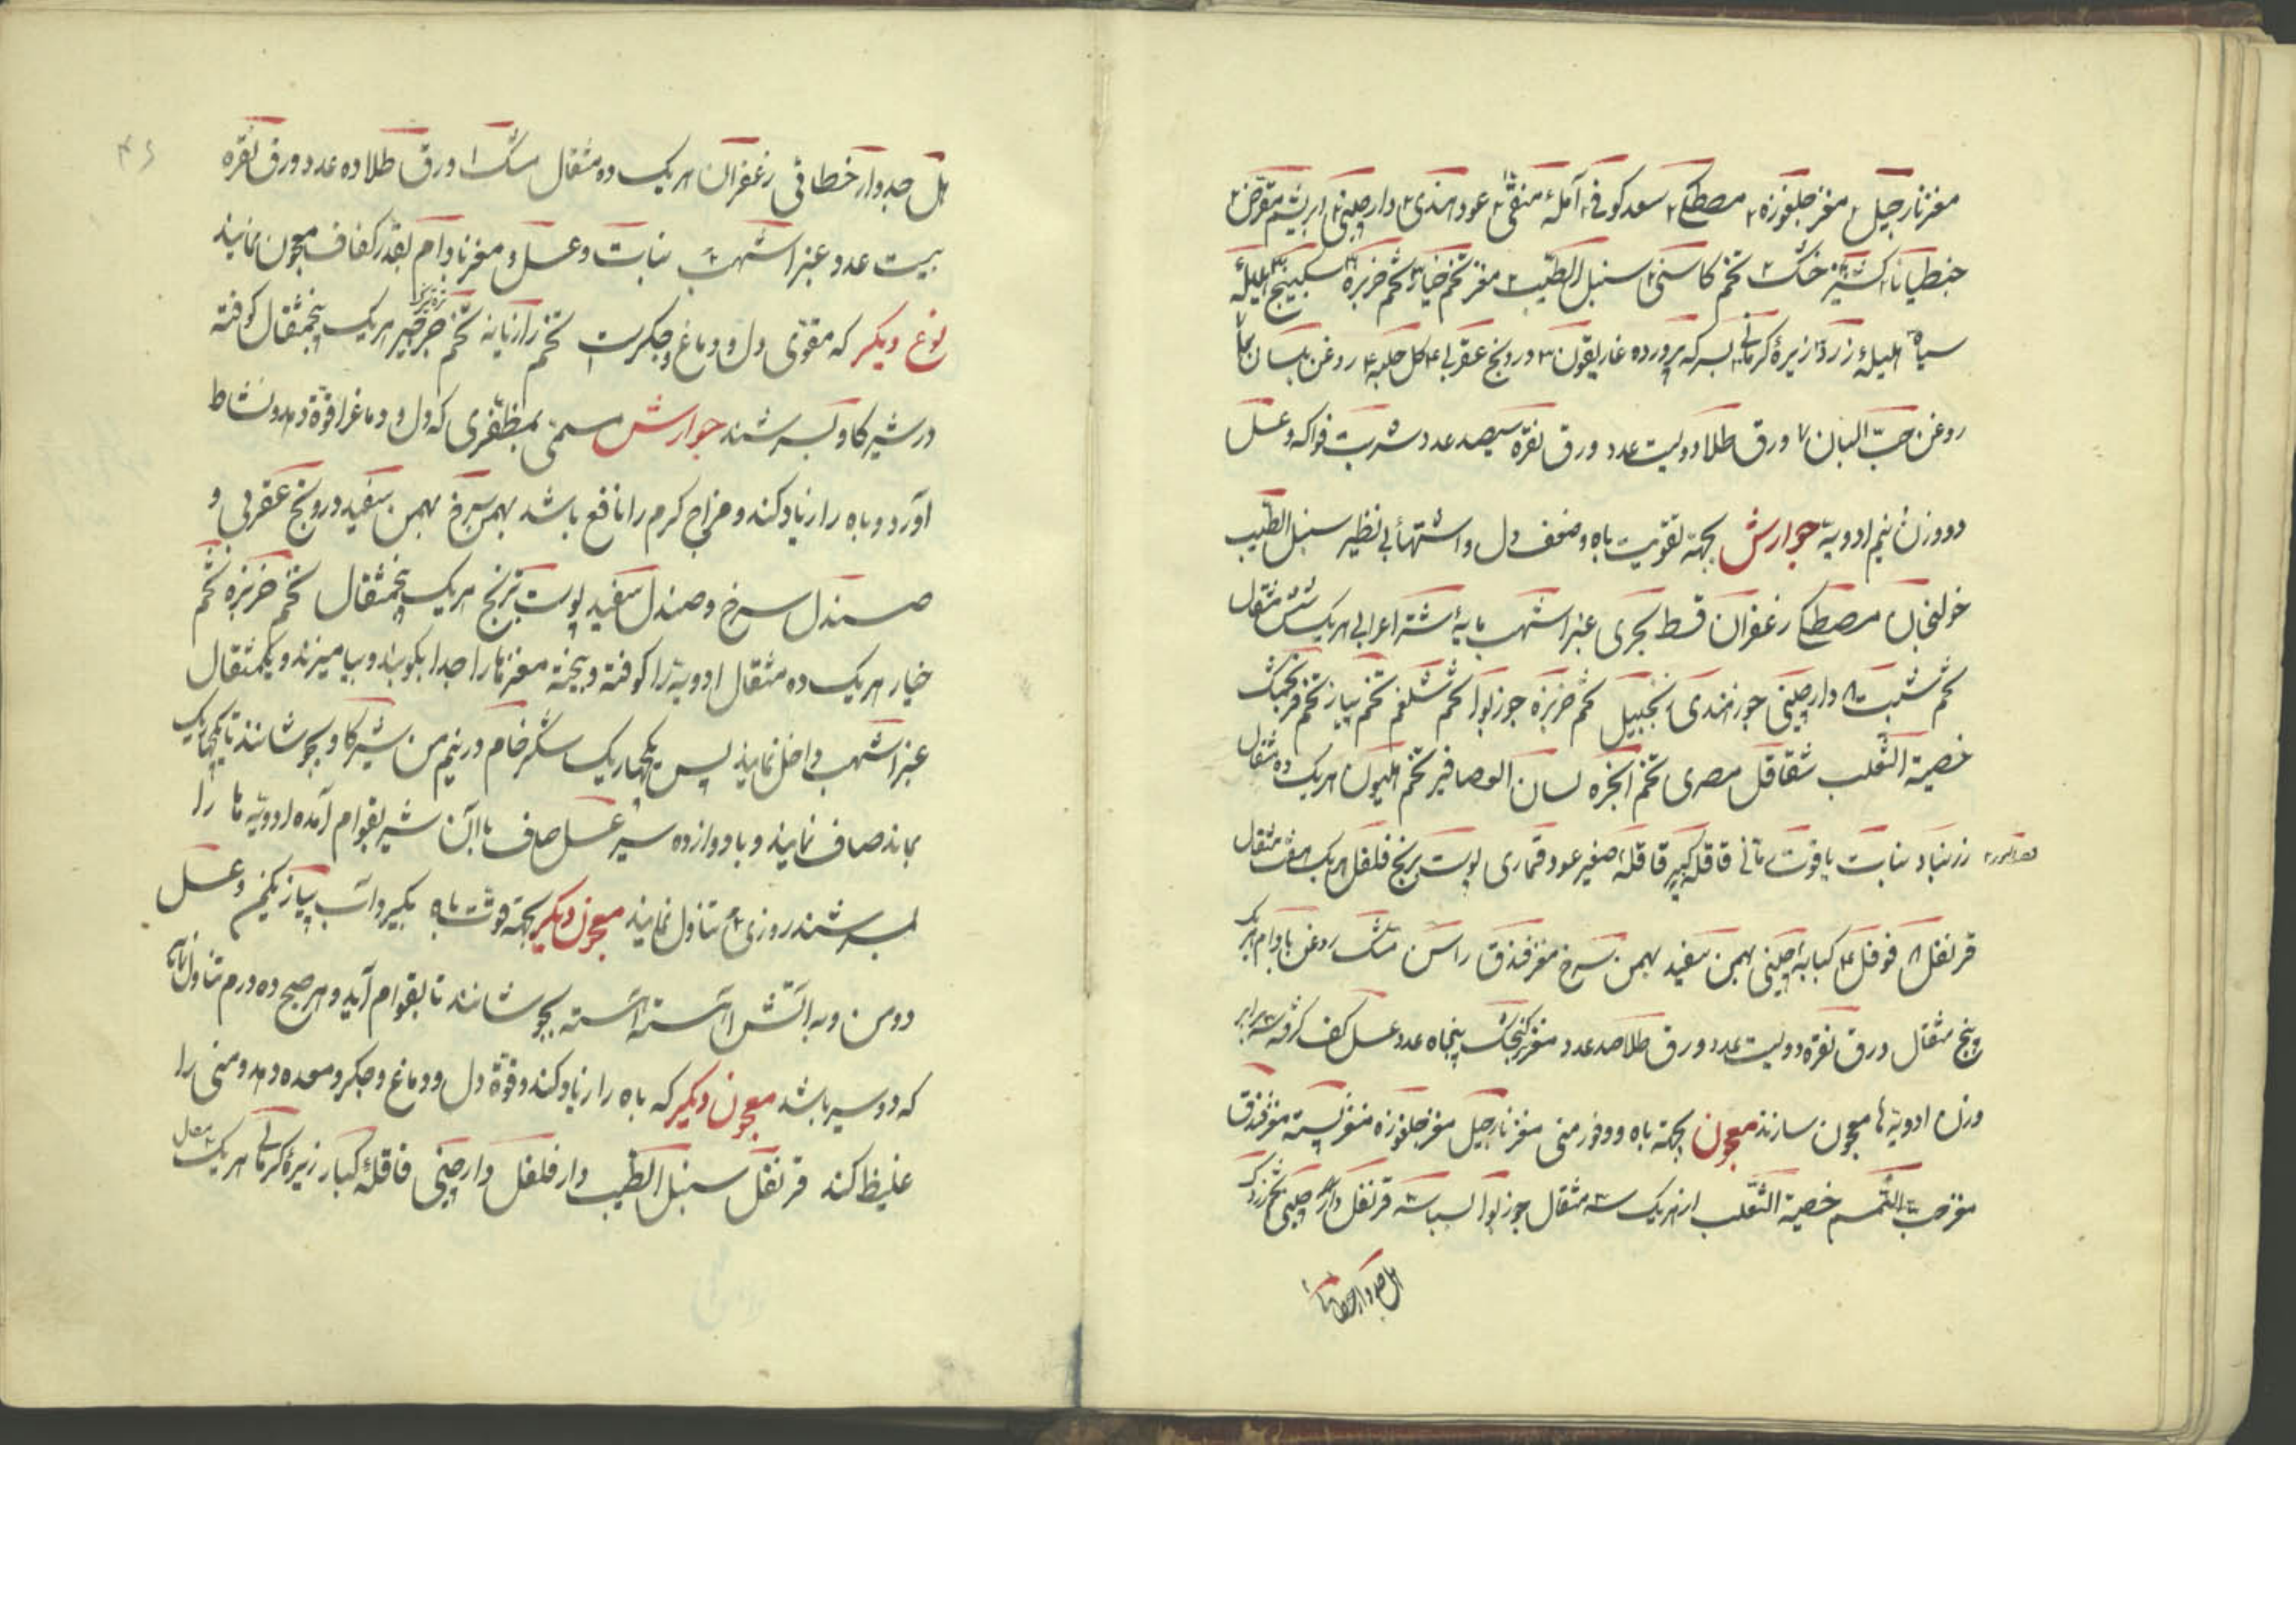 مغز نارجیل ۲ مغز جلغوزه ۲ مصطکی ۲ سعد کوفی ۲ آملهٔ منقّی ۲ عود هندی ۲ دارچینی ۲ ابریشم مقرّض ۲
جنطیانا ۲ کشنیز خشک ۲ تخم کاسنی ۲ سنبل الطّیب ۲ مغز تخم خیار ۳ تخم خربزه ۳ سکبینج هلیلهٔ
سیاه هلیلهٔ زرد زیرهٔ کرمانی بسرکه پرورده غاریقون ۳ درونج عقربی ۴ کل حلبه ۴ روغن بلسان
روغن حبّ البان ۷ ورق طلا دویست عدد ورق نقره سیصد عدد شربت فواکه و عسل
دو وزن نیم ادویه جوارش بجهة تقویت باه و ضعف دل و اشتها بی نظیر سنبل الطّیب
خولنجان مصطکی زعفران قسط بحری عنبر اشهب مایهٔ شتر اعرابی هریک شش مثقال
تخم شبت ۸ دارچینی جوز هندی زنجبیل تخم خربزه جوزبوا تخم شلغم تخم پیاز تخم فرنجمشک
خصیة الثّعلب شقاقل مصری تخم انجره لسان العصافیر تخم هلیون هریک ده مثقال
زرنباد نبات یاقوت رمّانی قاقله کبیر قاقله صغیر عود قماری پوست ترنج فلفل هریک هفت مثقال
قرنفل ۸ فوفل ۴ کبابه چینی بهمن سفید بهمن سرخ مغز فندق راسن مشک روغن بادام هریک
پنج مثقال ورق نقره دویست عدد ورق طلا صد عدد مغز کنجشک پنجاه عدد عسل کف گرفته سه برابر
وزن ادویه‌ها معجون سازند معجون بجهة باه و وفور منی مغز نارجیل مغز جلغوزه مغز پسته مغز فندق
مغز حبّ السّمسم خصیة الثّعلب از هریک سه مثقال جوزبوا بسباسه قرنفل دارچینی تخم زردک
هل جدوار خطائی
هل جدوار خطائی زعفران هریک ده مثقال مشک ۱ ورق طلا ده عدد ورق نقره
بیست عدد عنبر اشهب ۲ نبات و عسل و مغز بادام بقدر کفاف معجون نمایند
نوع دیگر که مقوّی دل و دماغ و جگرست تخم رازیانه تخم جرجیر هریک پنجمثقال کوفته
در شیر گاو بسرشند جوارش مسمّی بمظفّری که دل و دماغ را قوّة دهد و نشاط
آورد و باه را زیاد کند و مزاج گرم را نافع باشد بهمن سرخ بهمن سفید درونج عقربی و
صندل سرخ و صندل سفید پوست ترنج هریک پنجمثقال تخم خربزه تخم
خیار هریک ده مثقال ادویه را کوفته و بیخته مغزها را جدا بکوبند و بیامیزند و یکمثقال
عنبر اشهب داخل نمایند پس یکچهاریک شکر خام در نیم من شیر گاو بجوشانند تا یکچهاریک
بماند صاف نمایند و با دوازده سیر عسل صاف با آن شیر بقوام آمده ادویه‌ها را
بسرشند روزی ۲ م تناول نمایند معجون دیگر بجهة قوّت باه بگیرد آب پیاز یکمن و عسل
دو من و به آتش آهسته آهسته بجوشانند تا بقوام آید و هر صبح ده درم تناول نماید
که دو سیر باشد معجون دیگر که باه را زیاد کند و قوّة دل و دماغ و جگر و معده دهد و منی را
غلیظ کند قرنفل سنبل الطّیب دارفلفل دارچینی قاقلهٔ کبار زیرهٔ کرمانی هریک ۸ مثقال